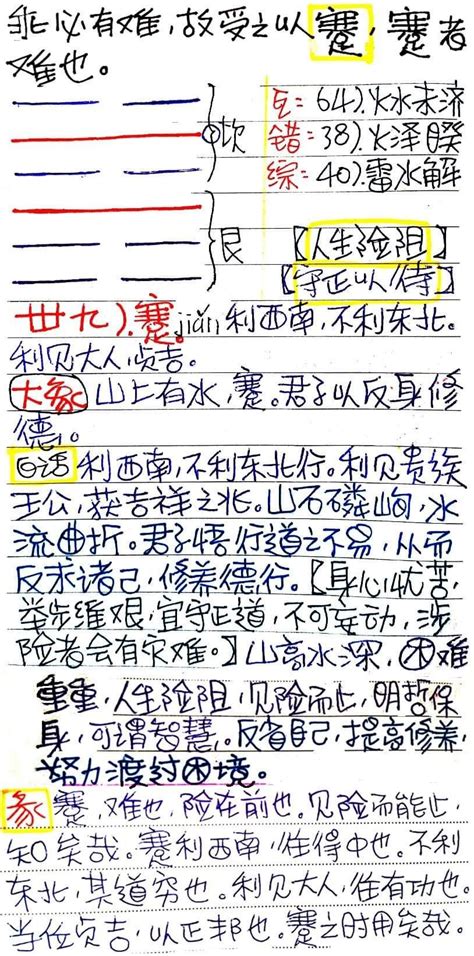 乖必有难，故受之以蹇，蹇者
难也。
坎
艮
互：64).火水未济
错：38).火泽睽
综：40).雷水解
【人生险阻】
【守正以待】
卅九).蹇。jiǎn,利西南，不利东北。
利见大人，贞吉。
大象 山上有水，蹇。君子以反身修
德。
白话 利西南，不利东北行。利见贵族
王公，获吉祥之兆。山石磷峋，水
流曲折。君子悟行道之不易，从而
反求诸己，修养德行。【身心忧苦，
举步维艰，宜守正道，不可妄动，涉
险者会有灾难。】山高水深，困难
重重，人生险阻，见险而止，明哲保
身，可谓智慧。反省自己，提高修养，
努力渡过困境。
彖 蹇，难也，险在前也。见险而能止，
知矣哉。蹇利西南，往得中也。不利
东北，其道穷也。利见大人，往有功也。
当位贞吉，以正邦也。蹇之时用矣哉。